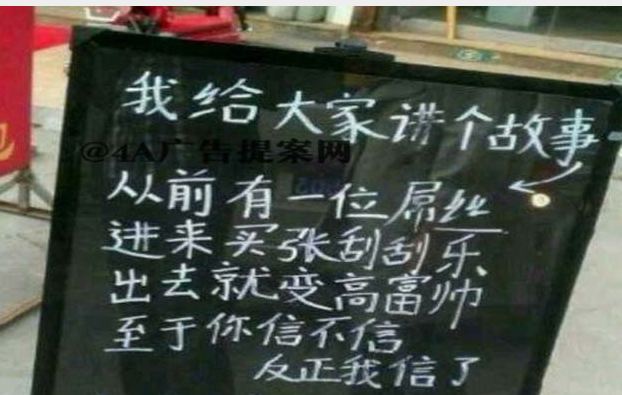 我给大家讲个故事
@4A广告提案网
从前有一位屌丝
进来买张刮刮乐
出去就变高富帅
至于你信不信
反正我信了